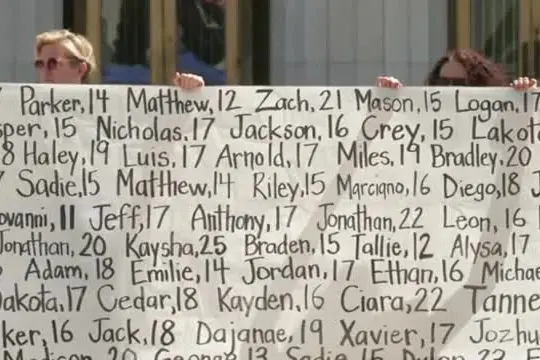 Parker, 14 Matthew, 12 Zach, 21 Mason, 15 Logan, 17
sper, 15 Nicholas, 17 Jackson, 16 Crey, 15 Lakot
8 Haley, 19 Luis, 17 Arnold, 17 Miles, 19 Bradley, 20
Sadie, 15 Matthew, 14 Riley, 15 Marciano, 16 Diego, 18 J
ovanni, 11 Jeff, 17 Anthony, 17 Jonathan, 22 Leon, 16
Jonathan, 20 Kaysha, 25 Braden, 15 Tallie, 12 Alysa, 17
Adam, 18 Emilie, 14 Jordan, 17 Ethan, 16 Michae
Dakota, 17 Cedar, 18 Kayden, 16 Ciara, 22 Tanne
ker, 16 Jack, 18 Dajanae, 19 Xavier, 17 Jozhu
Madison, 20 George, 13 Sadie, 15